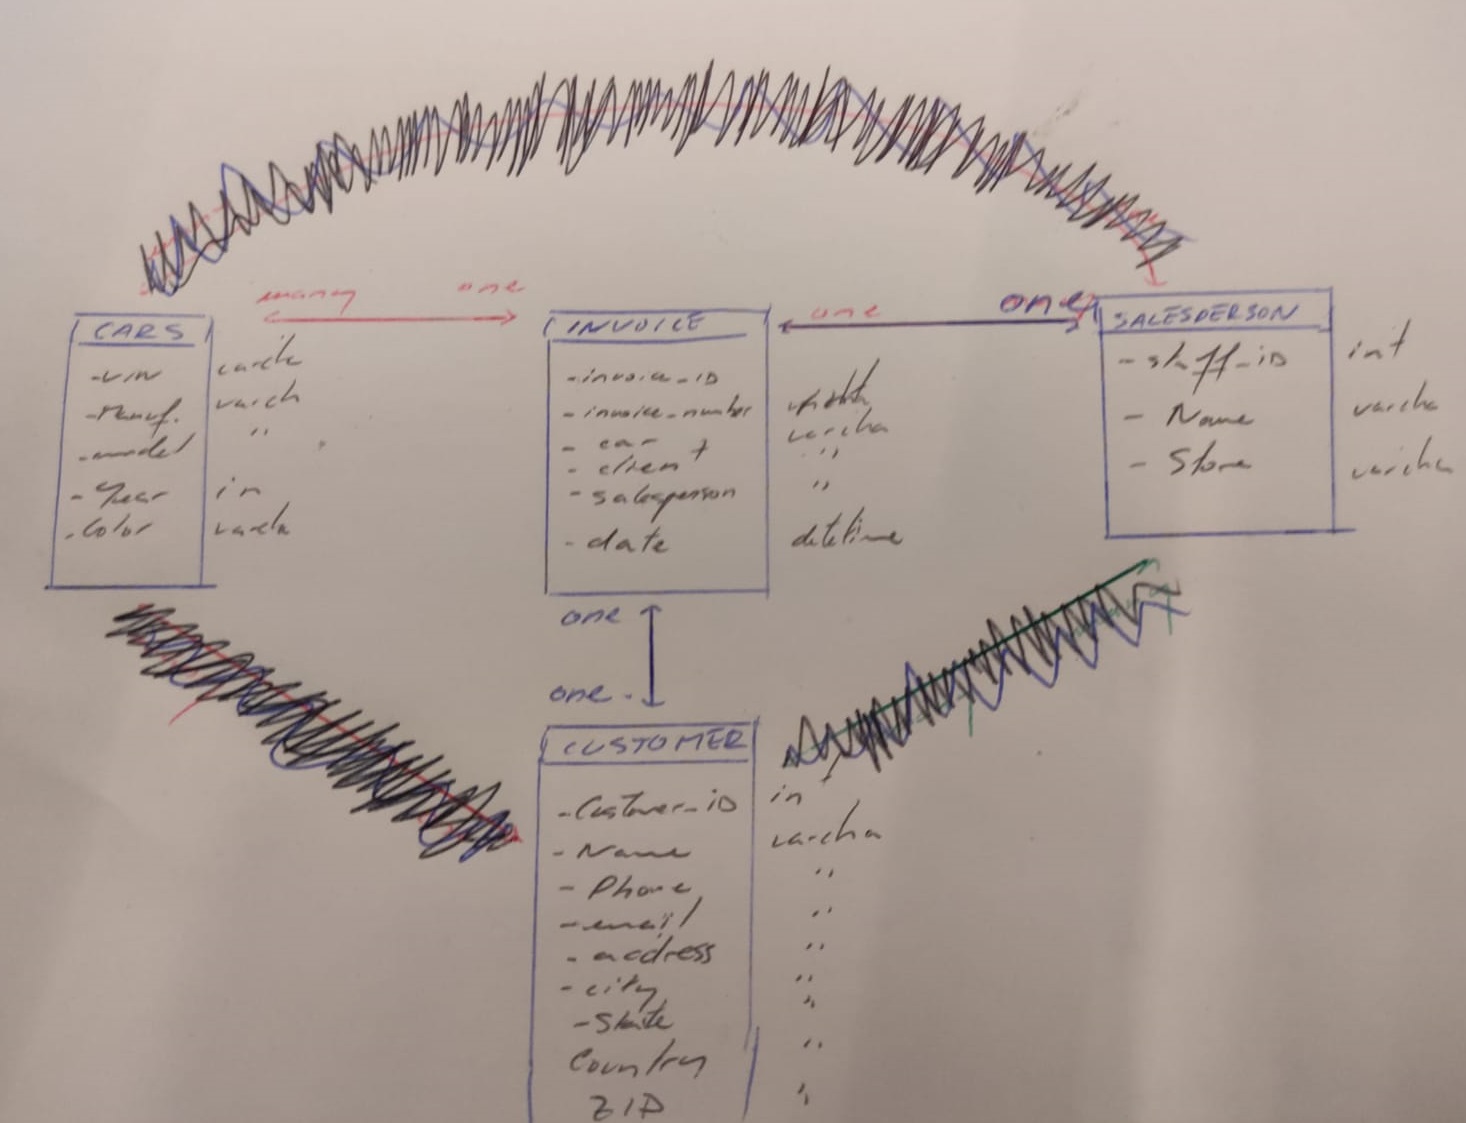 many one
one one
CARS
-VIN varch
-Manuf. varch
-model "
-Year in
-Color varch
INVOICE
-invoice_ID
-invoice_number
- car varcha
- client "
- salesperson "
- date datetime
SALESPERSON
- staff_ID int
- Name varcha
- Store varcha
one
one
CUSTOMER
-Customer_iD in
- Name varcha
- Phone "
- email "
- address "
- city "
- State "
Country "
ZIP "